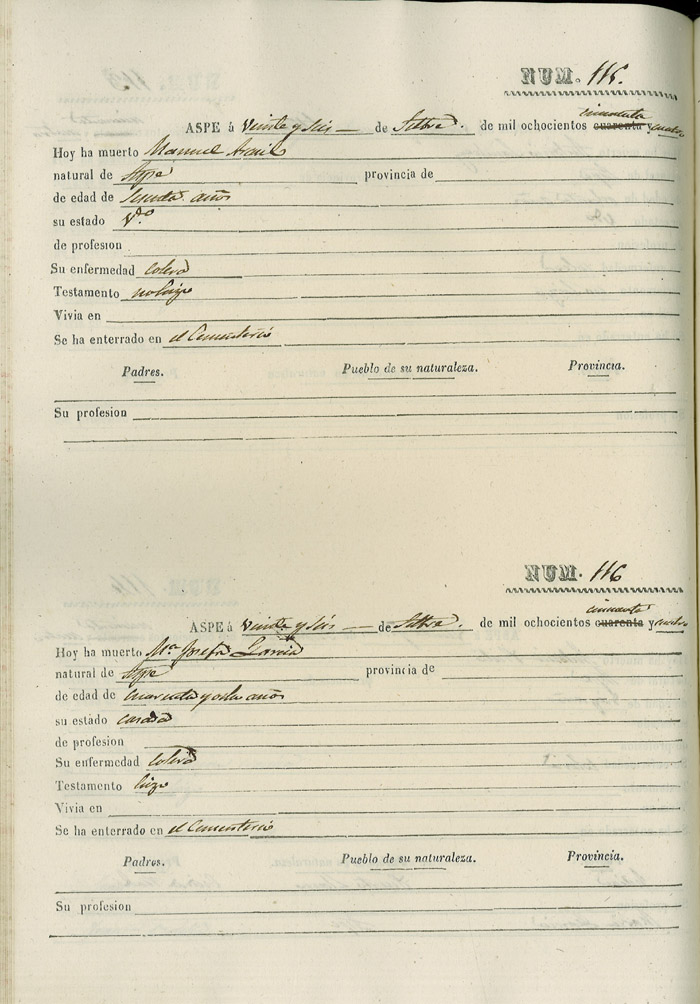 NUM. 115.
ASPE á Veinte y Seis de Setbre. de mil ochocientos cuarenta cincuenta y cuatro
Hoy ha muerto Manuel
natural de Aspe provincia de
de edad de años
su estado V.do
de profesion
Su enfermedad colera
Testamento no hizo
Vivia en
Se ha enterrado en el Cementerio
Padres. Pueblo de su naturaleza. Provincia.
Su profesion
NUM. 116
ASPE á Veinte y Seis de Setbre. de mil ochocientos cuarenta cincuenta y cuatro
Hoy ha muerto Ma. Josefa Garcia
natural de Aspe provincia de
de edad de cuarenta y ocho años
su estado casada
de profesion
Su enfermedad colera
Testamento hizo
Vivia en
Se ha enterrado en el Cementerio
Padres. Pueblo de su naturaleza. Provincia.
Su profesion